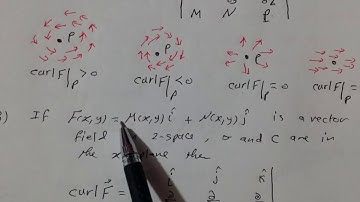 M N P
P P P P
curl F|p > 0 curl F|p < 0 curl F|p = 0 curl F|p =
If F(x,y) = M(x,y) î + N(x,y) ĵ is a vector
field 2-space, and C are in
the plane then
î ĵ k̂
curl F⃗ = ∂ ∂ ∂